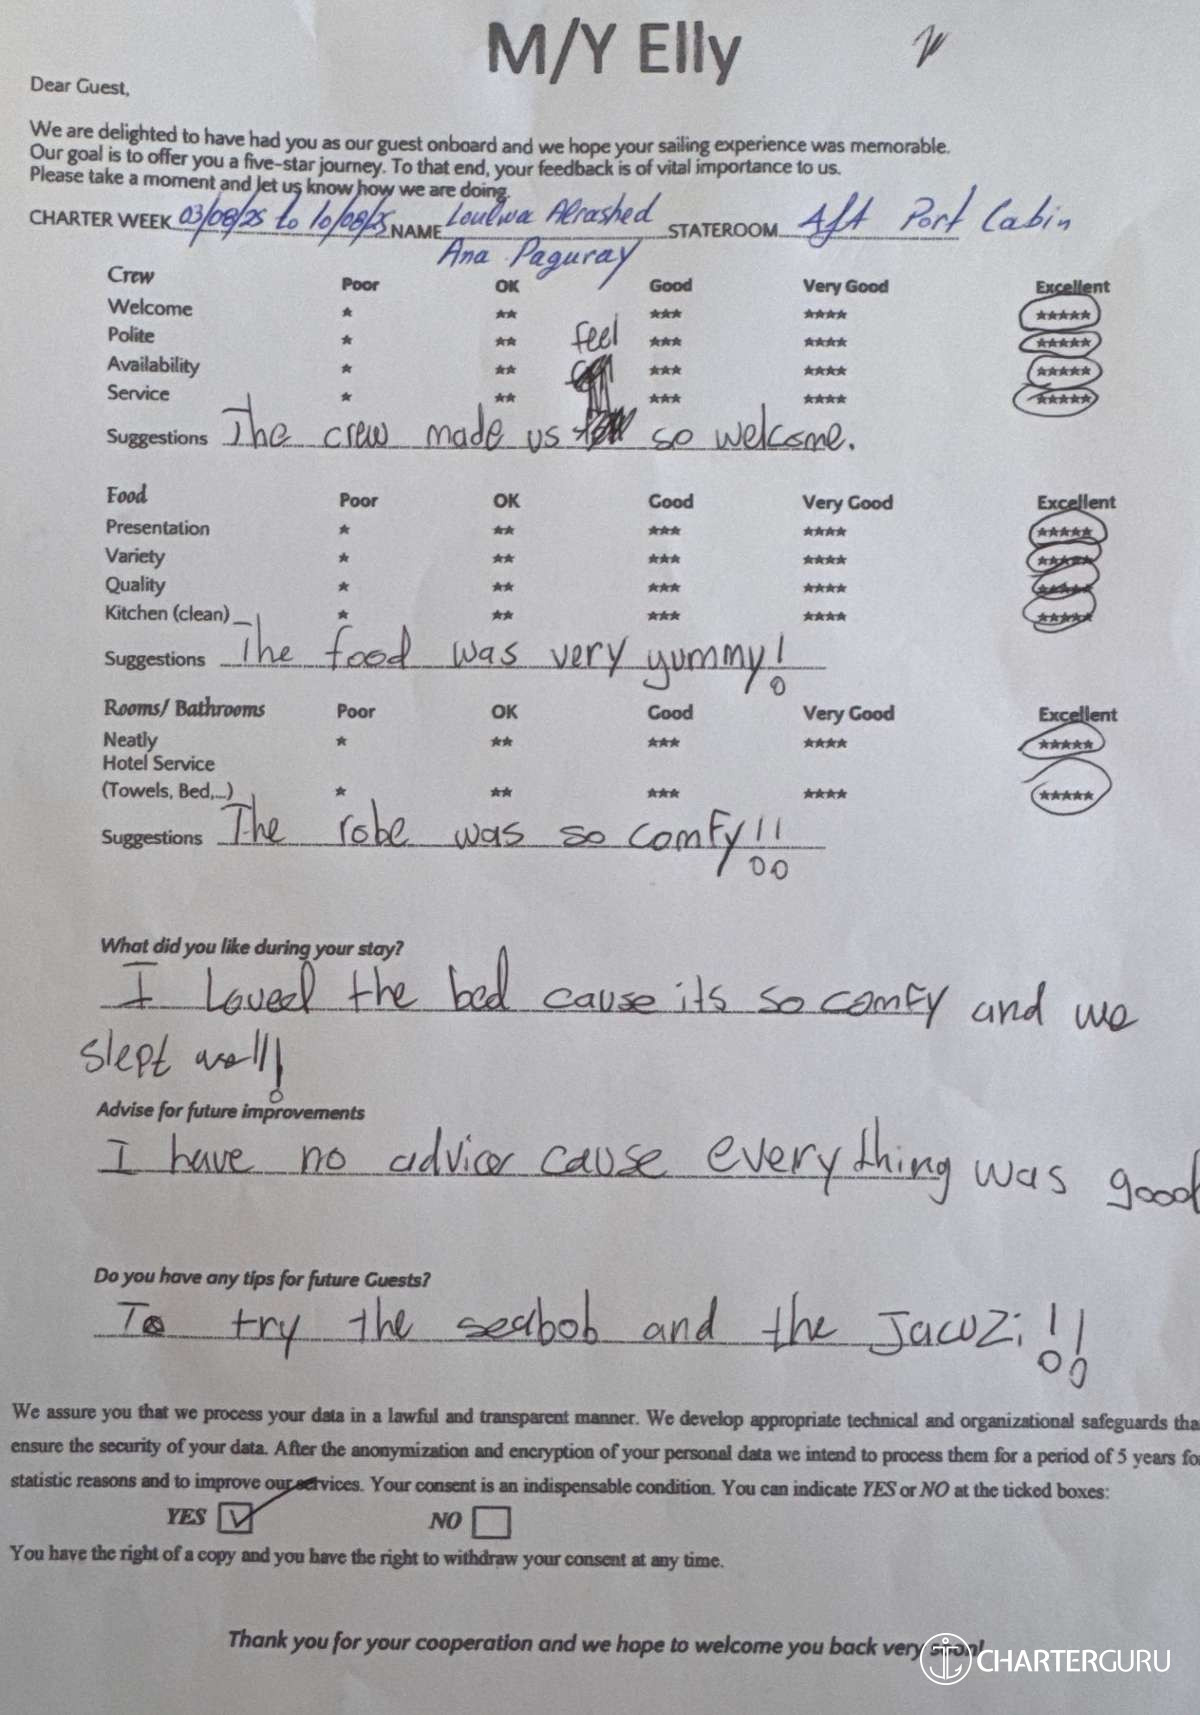 M/Y Elly
Dear Guest,
We are delighted to have had you as our guest onboard and we hope your sailing experience was memorable.
Our goal is to offer you a five-star journey. To that end, your feedback is of vital importance to us.
Please take a moment and let us know how we are doing.
CHARTER WEEK 03/08/25 to 10/08/25 NAME Loulwa Alrashed STATEROOM Aft Port Cabin
Ana Paguray
Crew Poor OK Good Very Good Excellent
Welcome * ** *** **** *****
Polite * ** *** **** *****
feel
Availability * ** *** **** *****
Service * ** *** **** *****
Suggestions The crew made us so welcome.
Food Poor OK Good Very Good Excellent
Presentation * ** *** **** *****
Variety * ** *** **** *****
Quality * ** *** **** *****
Kitchen (clean) * ** *** **** *****
Suggestions The food was very yummy!
Rooms/ Bathrooms Poor OK Good Very Good Excellent
Neatly * ** *** **** *****
Hotel Service
(Towels, Bed,...) * ** *** **** *****
Suggestions The robe was so comfy!!
What did you like during your stay?
I Loved the bed cause its so comfy and we
slept well!
Advise for future improvements
I have no advice cause everything was good
Do you have any tips for future Guests?
To try the seabob and the Jacuzi!!
We assure you that we process your data in a lawful and transparent manner. We develop appropriate technical and organizational safeguards tha
ensure the security of your data. After the anonymization and encryption of your personal data we intend to process them for a period of 5 years fo
statistic reasons and to improve our services. Your consent is an indispensable condition. You can indicate YES or NO at the ticked boxes:
YES NO
You have the right of a copy and you have the right to withdraw your consent at any time.
Thank you for your cooperation and we hope to welcome you back very soon!
CHARTERGURU